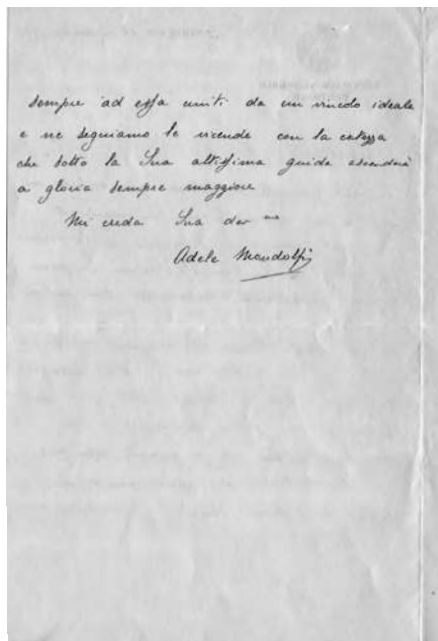 sempre ad essa uniti da un vincolo ideale
e ne seguiamo le vicende con la certezza
che sotto la Sua altissima guida ascenderà
a gloria sempre maggiore
Mi creda Sua dev ma
Adele Mondolfi